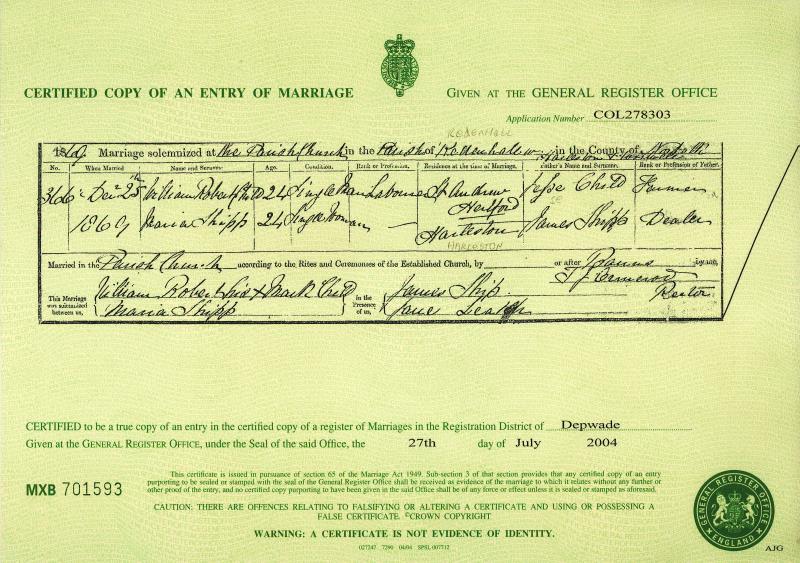 CERTIFIED COPY OF AN ENTRY OF MARRIAGE
GIVEN AT THE GENERAL REGISTER OFFICE
Application Number COL278303
REDENHALL
1869. Marriage solemnized at the Parish Church in the Parish of Redenhall w. in the County of Norfolk
Harleston
No. When Married Name and Surname. Age. Condition. Rank or Profession. Residence at the time of Marriage. Father's Name and Surname. Rank or Profession of Father.
366 Decr 25th William Robert Child 24 Single Man Labourer St Andrew Hertford Jesse Child Farmer
1869 Maria Shipp 24 Single Woman — Harleston James Shipp Dealer
HARLESTON
Married in the Parish Church according to the Rites and Ceremonies of the Established Church, by or after Banns by me,
This Marriage was solemnized between us, William Robert Child X Mark Child
Maria Shipp
in the Presence of us, James Ship
Jane
Rector
CERTIFIED to be a true copy of an entry in the certified copy of a register of Marriages in the Registration District of Depwade
Given at the GENERAL REGISTER OFFICE, under the Seal of the said Office, the 27th day of July 2004
This certificate is issued in pursuance of section 65 of the Marriage Act 1949. Sub-section 3 of that section provides that any certified copy of an entry
purporting to be sealed or stamped with the seal of the General Register Office shall be received as evidence of the marriage to which it relates without any further or
other proof of the entry, and no certified copy purporting to have been given in the said Office shall be of any force or effect unless it is sealed or stamped as aforesaid.
MXB 701593
CAUTION: THERE ARE OFFENCES RELATING TO FALSIFYING OR ALTERING A CERTIFICATE AND USING OR POSSESSING A
FALSE CERTIFICATE. ©CROWN COPYRIGHT
WARNING: A CERTIFICATE IS NOT EVIDENCE OF IDENTITY.
027247 7290 04/04 SPSL 007712
GENERAL REGISTER OFFICE
ENGLAND
AJG